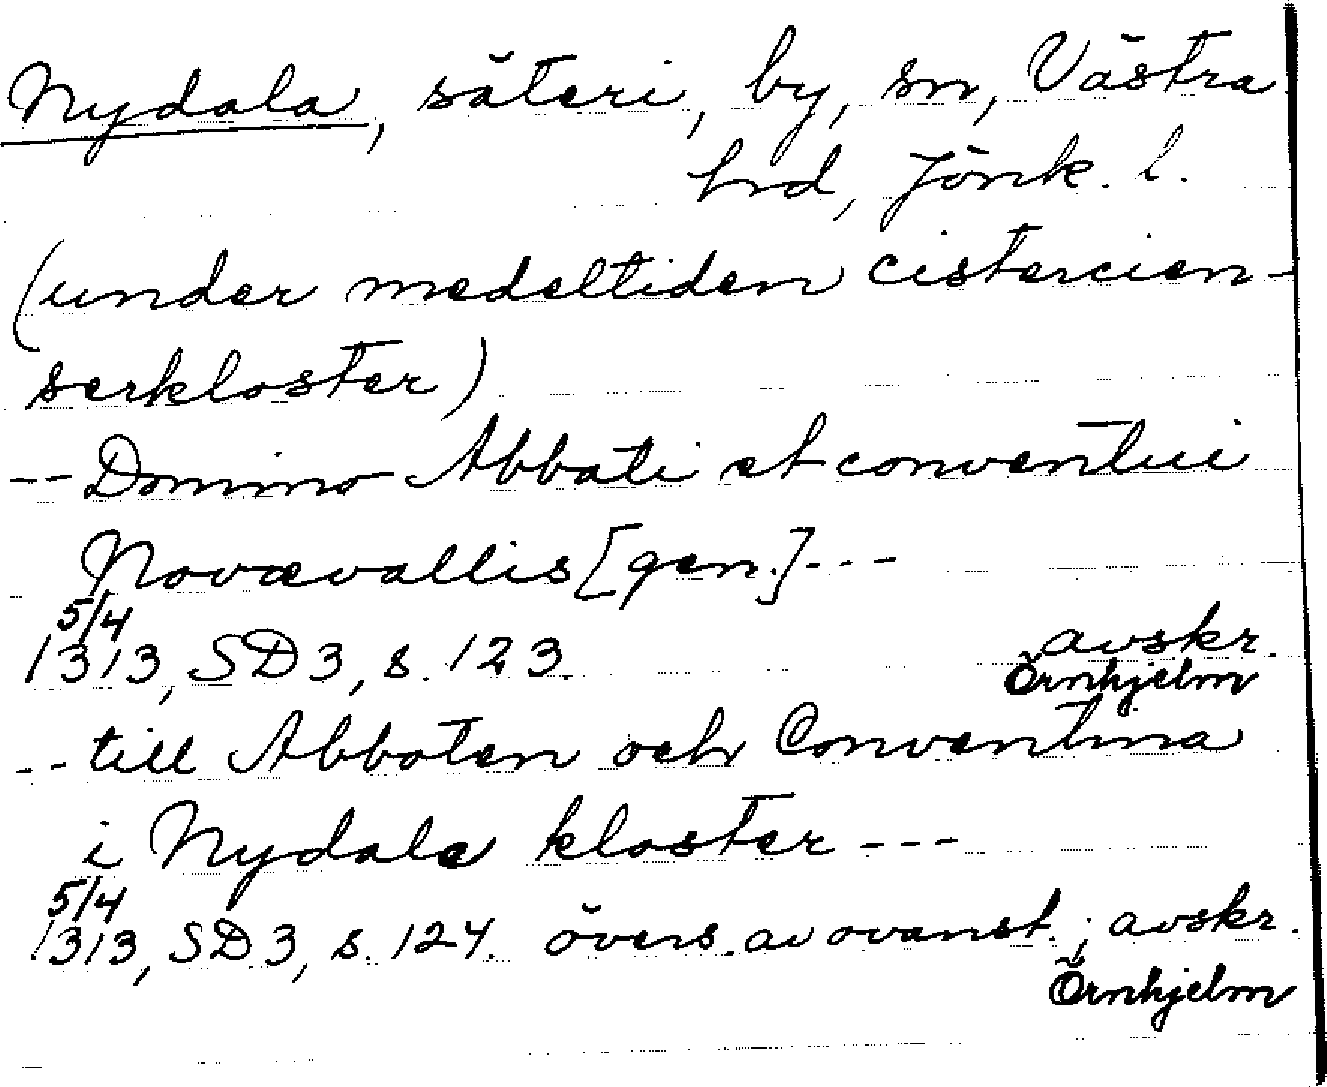 Nydala, säteri, by, sn, Västra
hrd, Jönk. l.
(under medeltiden cistercien-
serkloster)
-- Domino Abbati et conventui
Novævallis [gen.] ---
5/4
1313, SD 3, s. 123. avskr.
Örnhjelm
-- till Abboten och Conventina
i Nydale kloster ---
5/4
1313, SD 3, s. 124. övers. av ovanst.; avskr.
Örnhjelm